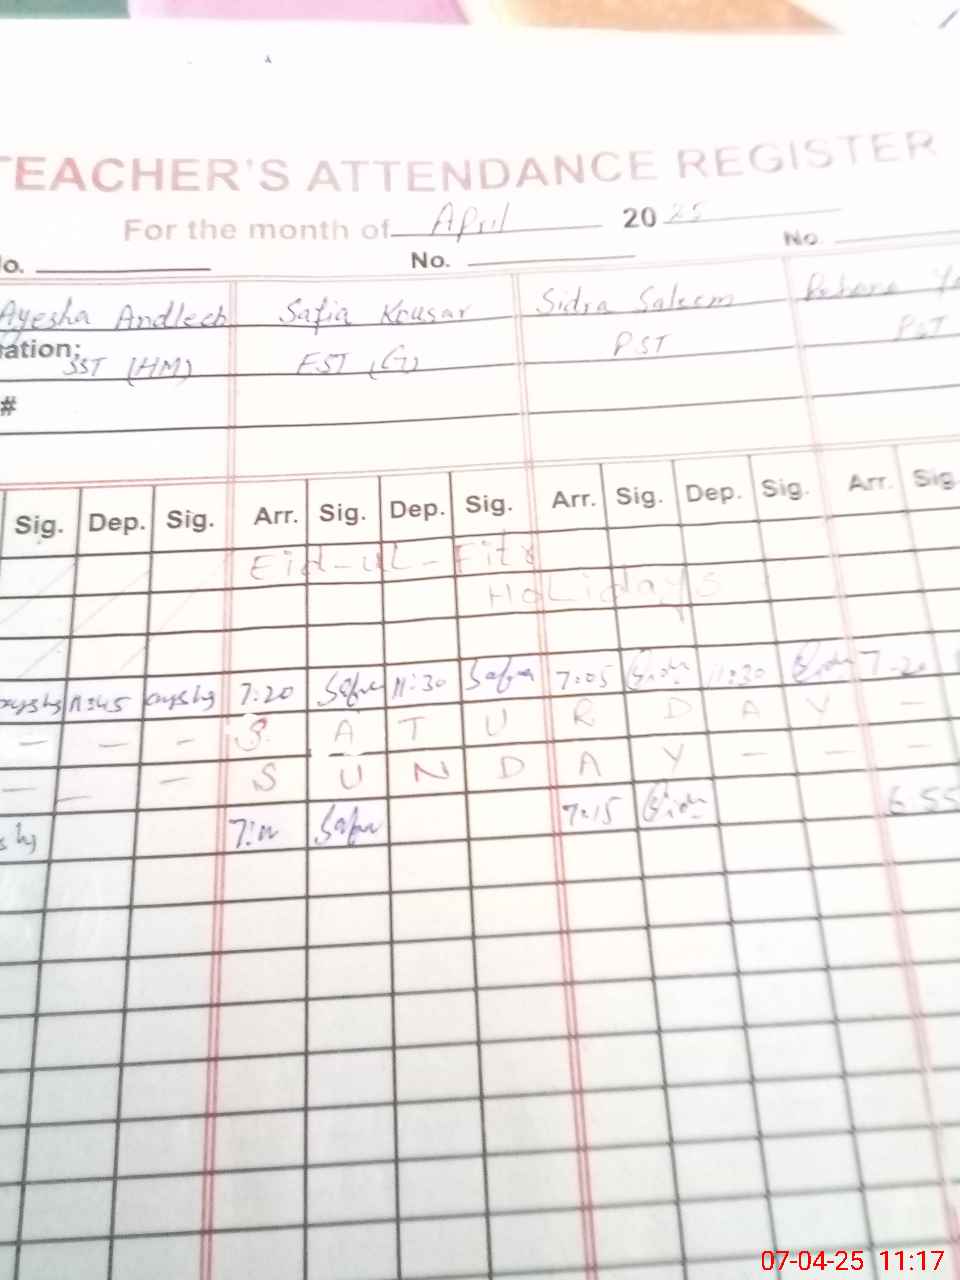 TEACHER'S ATTENDANCE REGISTER
For the month of April 2025
No. No. No.
Ayesha Andleeb Safia Kousar Sidra Saleem
ation: SST (HM) EST (G) PST PST
#
Sig. Dep. Sig. Arr. Sig. Dep. Sig. Arr. Sig. Dep. Sig. Arr. Sig.
Eid-ul-Fitr
Holidays
11:45 7:20 Safia 11:30 Safia 7:05 11:30 7:20
— — — S A T U R D A Y —
— — — S U N D A Y — — —
Safia 7:15 6:55
07-04-25 11:17